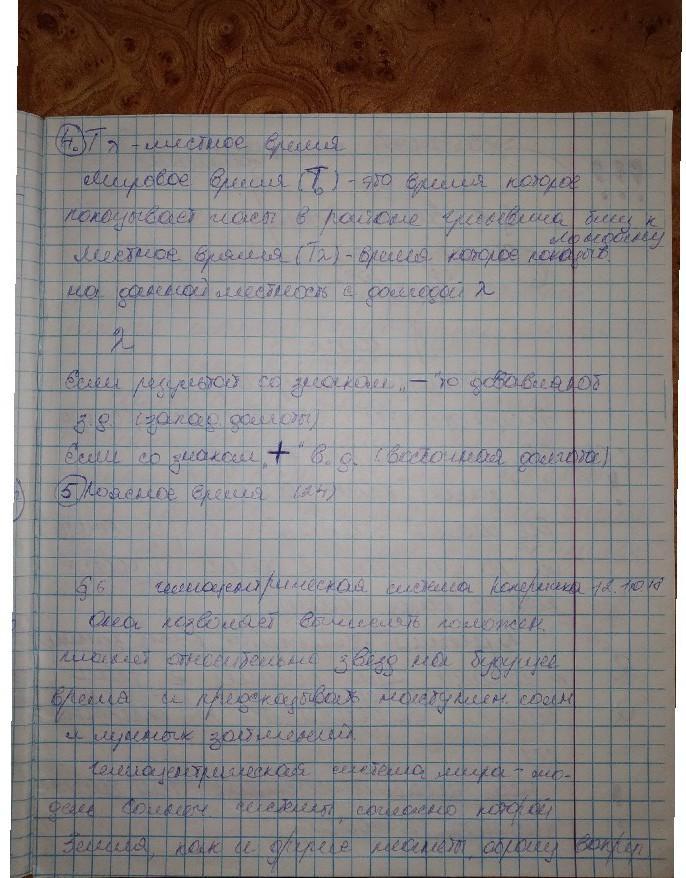 4. Tλ - местное время
Мировое время (T₀) - это время которое
показывает часы в районе гринвича близ к
лондону
Местное время (Tλ) - время которое показыв.
на данной местность с долгодой λ
λ
Если результат со знаком "—" то добавляют
з.д. (запад. долготы)
Если со знаком "+" в.д. (восточная долгота)
5 Поясное время (24)
§6 гелиоцентрическая система Коперника 12.10.
Она позволяет вычислять положен.
планет относительно звезд на будущее
время и предсказывать наступлен. солн
и лунных затмений.
Гелиоцентрическая система мира - мо-
дель солнеч системы, согласно которой
Земля, как и другие планеты, обращ вокруг